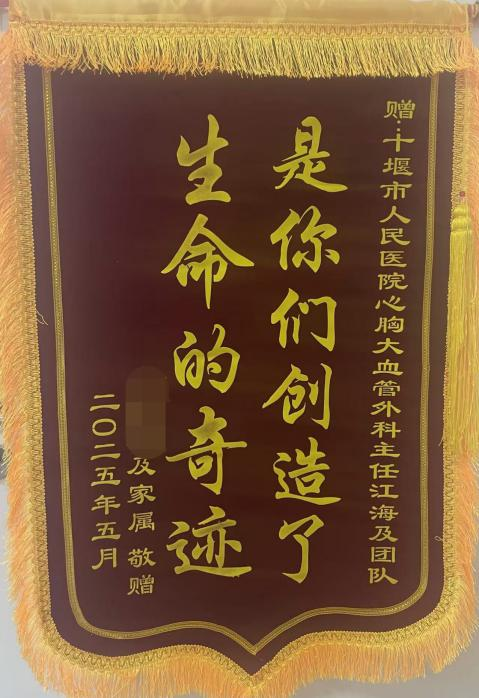 赠:十堰市人民医院心胸大血管外科主任江海及团队
是你们创造了
生命的奇迹
及家属敬赠
二〇二五年五月